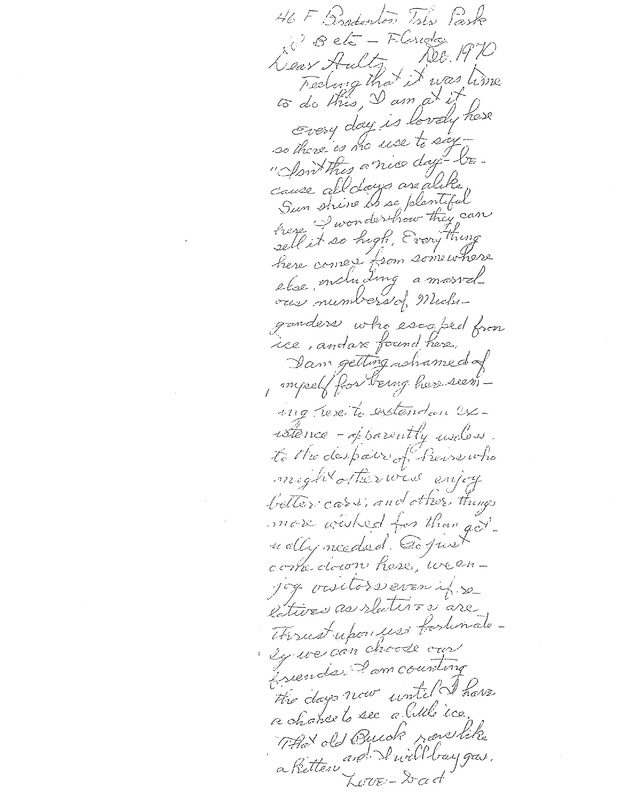 46 F Bradenton Trlr Park
Beto - Florida
Dear Aultz Dec. 1970
Feeling that it was time
to do this, I am at it
Every day is lovely here
so there is no use to say -
"Isn't this a nice day - be-
cause all days are alike,
Sun shine is so plentiful
here I wonder how they can
sell it so high. Everything
here comes from somewhere
else, including a marvel-
ous numbers of Michi-
ganders who escaped from
ice, and are found here.
I am getting ashamed of
myself for being here seem-
ing here to extend an ex-
istence - apparently useless
to the despair of heirs who
might otherwise enjoy
better cars, and other things
more wished for than act-
ually needed. So just
come down here, we en-
joy visitors even if re-
latives as relatives are
thrust upon us; fortunate-
ly we can choose our
friends. I am counting
the days now until I have
a chance to see a little ice.
That old Buick roars like
a kitten and I will buy gas.
Love - Dad